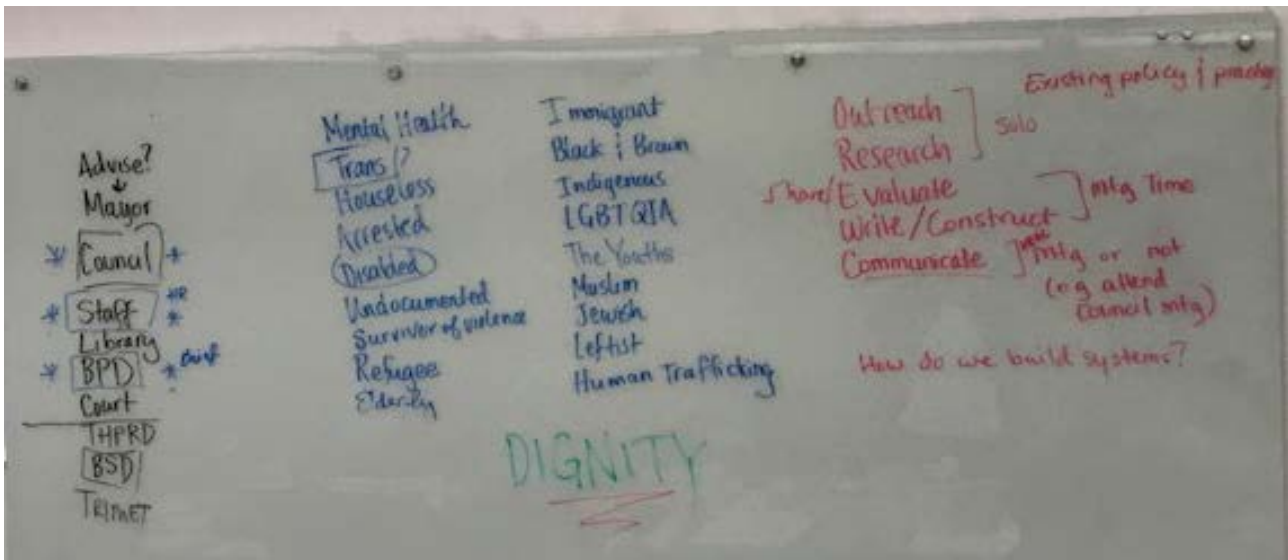 Advise?
↓
Mayor
* Council *
* Staff * HR
Library
* BPD *
Court
THPRD
BSD
TRIMET
Mental Health
Trans ?
Houseless
Arrested
Disabled
Undocumented
Survivor of violence
Refugee
Elderly
Immigrant
Black & Brown
Indigenous
LGBTQIA
The Youths
Muslim
Jewish
Leftist
Human Trafficking
DIGNITY
Existing policy &
Outreach
Research
Solo
Share/Evaluate
Write/Construct
mtg Time
Communicate
mtg or not
(e.g attend
Council mtg)
How do we build systems?